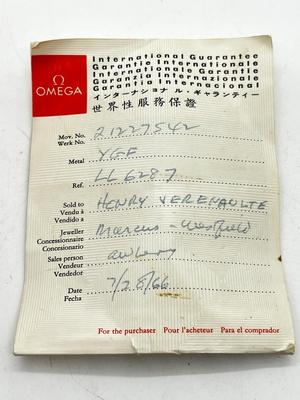 Ω
OMEGA
International Guarantee
Garantie Internationale
Internationale Garantie
Garanzia Internazionale
Garantia Internacional
インターナショナル・ギャランティー
世界性服務保證
Mov. No. 21227542
Werk No.
Metal YGF
Ref. LL 6287
Sold to HENRY
Vendu à
Vendido a
Jeweller Marcus - Westfield
Concessionnaire
Concesionario
Sales person
Vendeur
Vendedor
Date 7/28/66
Fecha
For the purchaser Pour l'acheteur Para el comprador